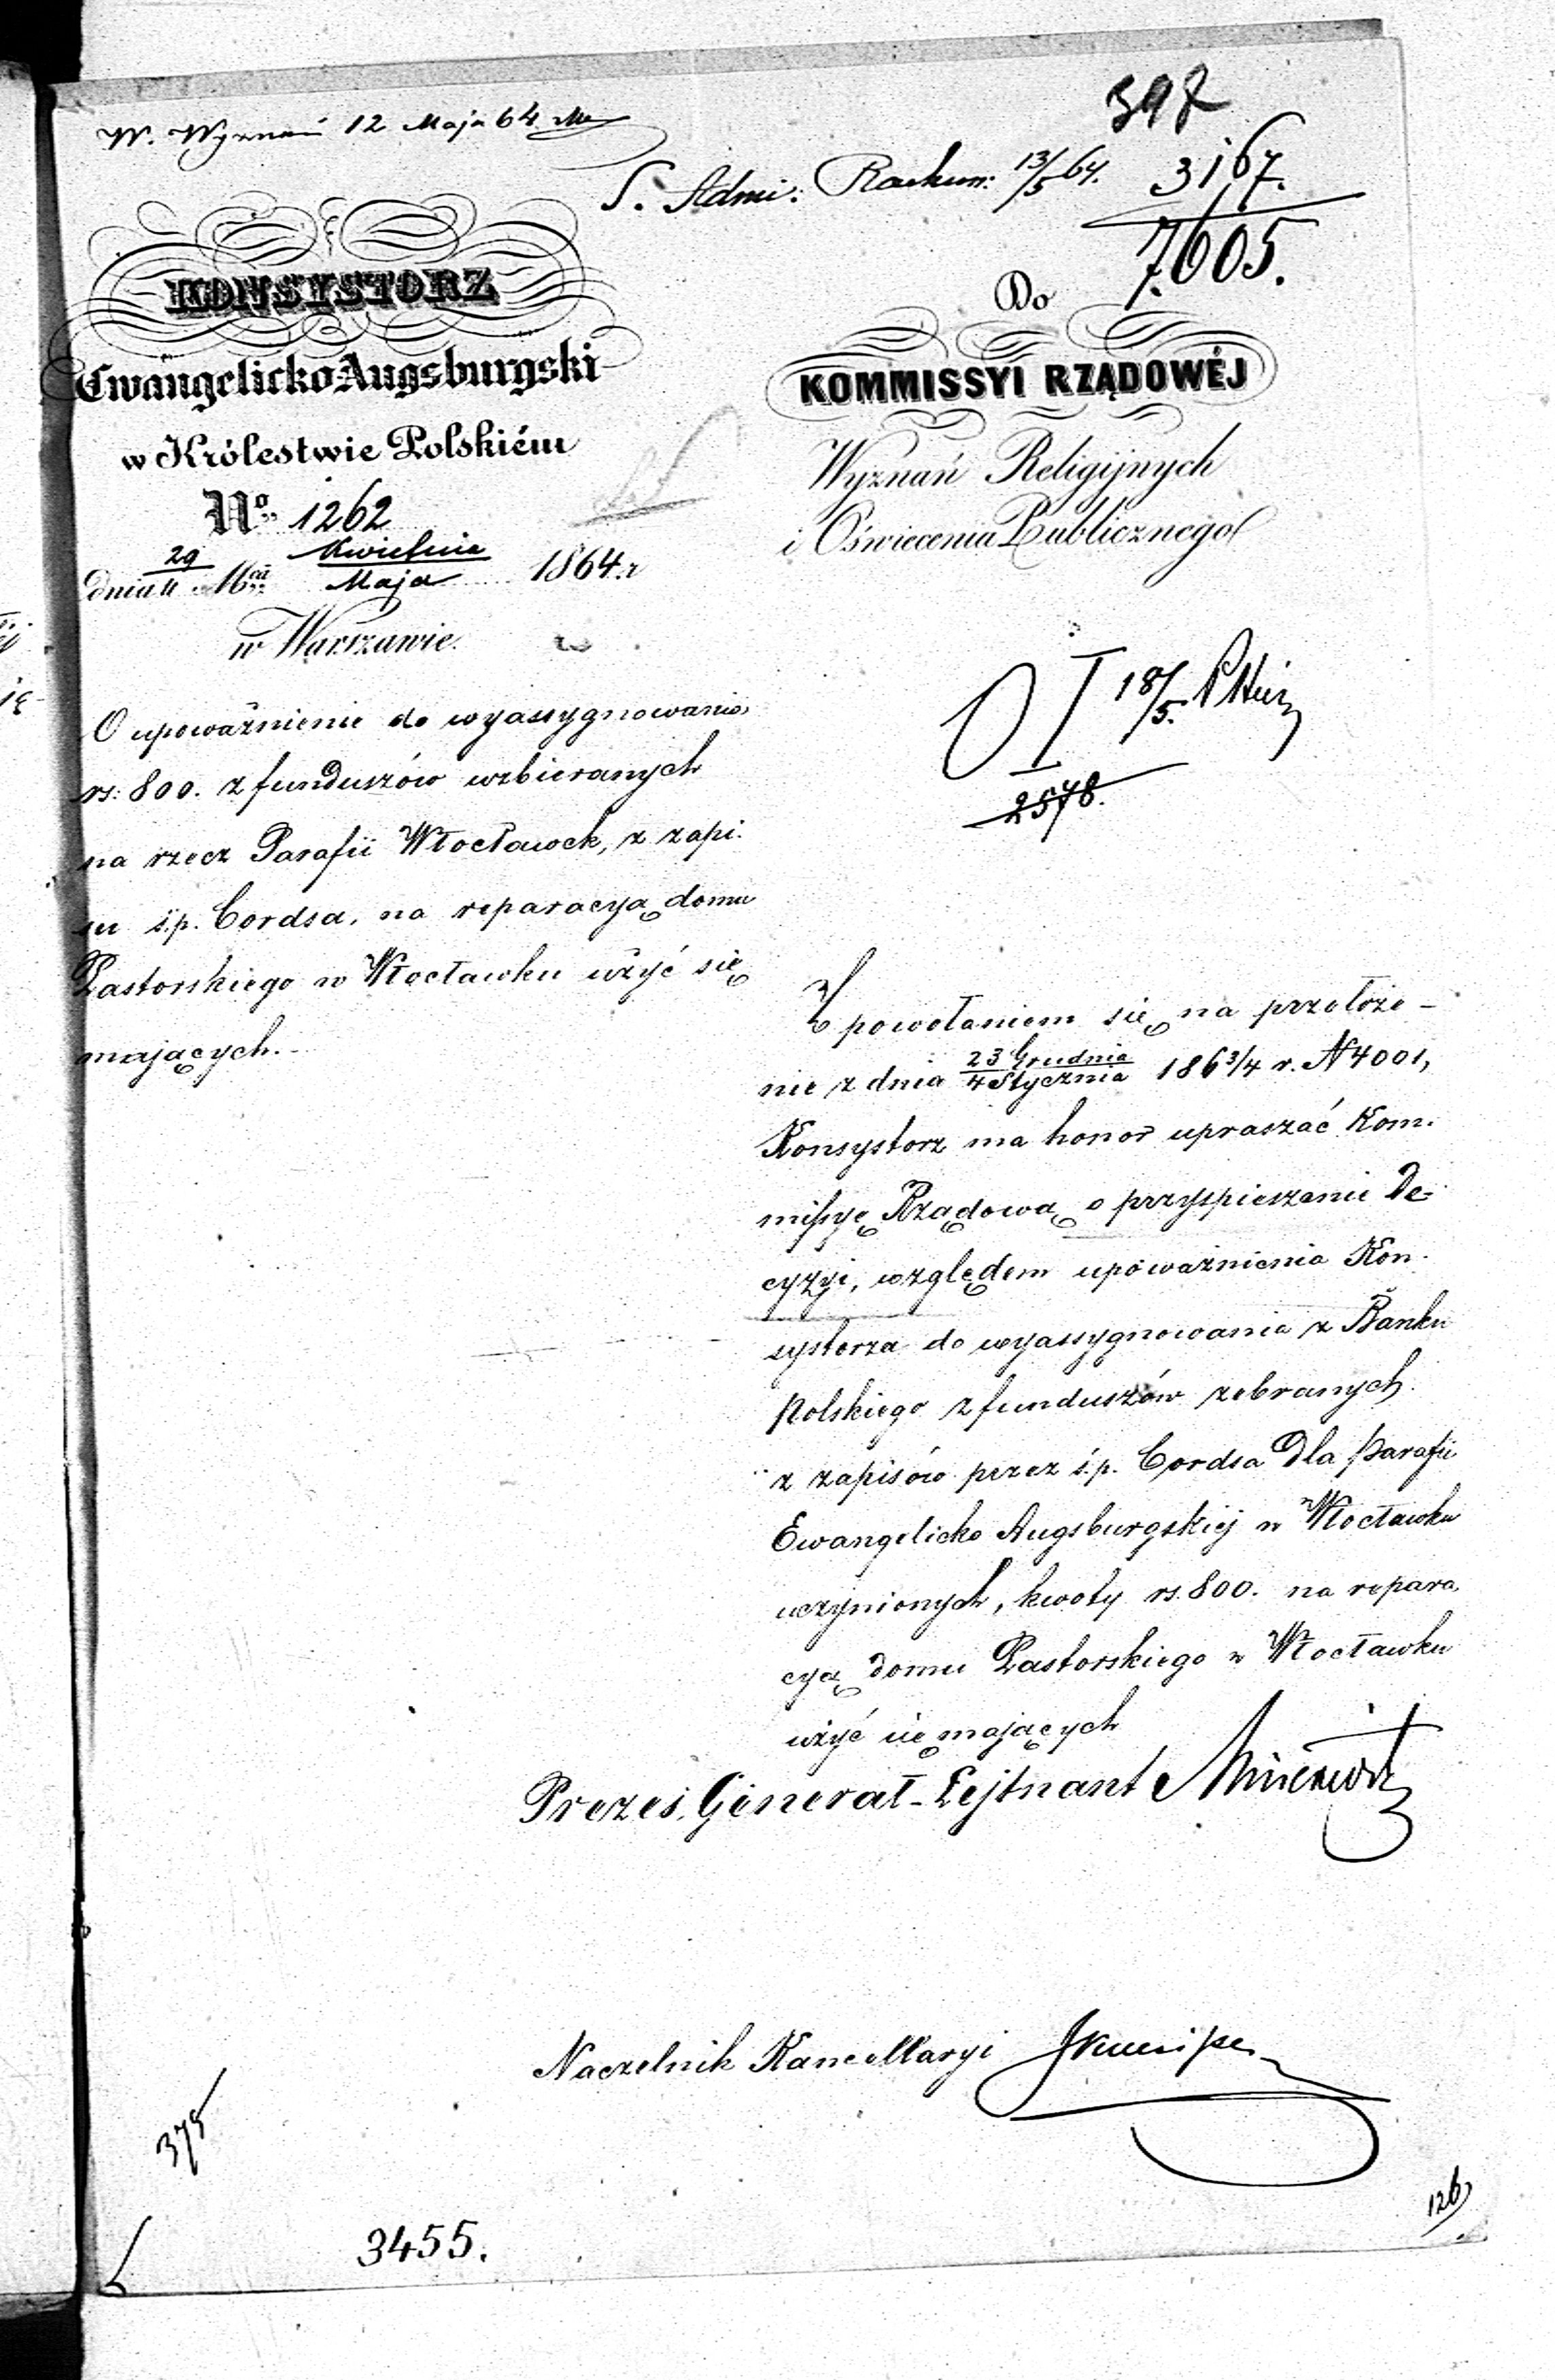 W. Wyznań 12 Maja 64
S. Admi: Rachun: 13/5 64.
397
3167.
7.605.
KONSYSTORZ
Ewangelicko-Augsburgski
w Królestwie Polskiém
No. 1262
dnia 29/11 Mca Kwietnia/Maja 1864. r
w Warszawie.
Do
KOMMISSYI RZĄDOWÉJ
Wyznań Religijnych
i Oświecenia Publicznego
18/5.
2578.
O upoważnienie do wyassygnowania
rs: 800. z funduszów uzbieranych
na rzecz Parafii Włocławek, z zapi-
su ś.p. Cordsa, na reparacyą domu
Pastorskiego w Włocławku użyć się
mających.-
Z powołaniem się na przełoże-
nie z dnia 23 Grudnia/4 Stycznia 186 3/4 r. N 4001,
Konsystorz ma honor upraszać Kom-
missyę Rządową o przyspieszenie De-
cyzyi, względem upoważnienia Kon-
systorza do wyassygnowania z Banku
Polskiego z funduszów zebranych
z zapisów przez ś.p. Cordsa dla Parafii
Ewangelicko Augsburgskiej w Włocławku
uczynionych, kwoty rs. 800. na repara-
cyą domu Pastorskiego w Włocławku
użyć się mających
Prezes, Generał-Lejtnant
Naczelnik Kancellaryi
375
3455.
126